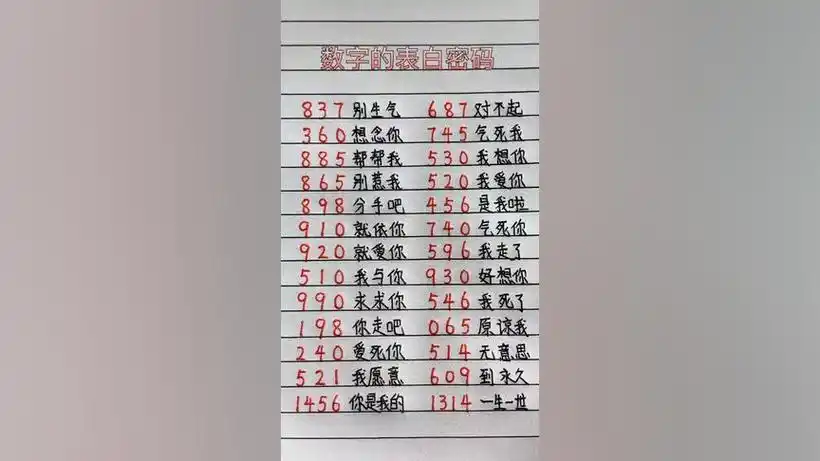 数字的表白密码
837别生气 687对不起
360想念你 745气死我
885帮帮我 530我想你
865别惹我 520我爱你
898分手吧 456是我啦
910就依你 740气死你
920就爱你 596我走了
510我与你 930好想你
990求求你 546我死了
198你走吧 065原谅我
240爱死你 514无意思
521我愿意 609到永久
1456你是我的 1314一生一世